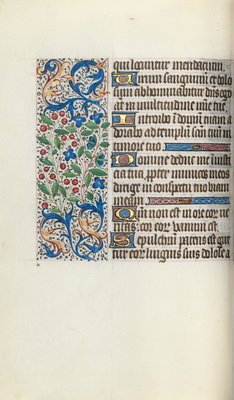 qui locuntur mendacium.
Virum sanguinū et dolo
sum abhominabitur dn̄s ego
aūt in multitudine mīe tue.
Introibo ī domū tuam a
dorabo ad templū sāctū tuū in
timore tuo
Domine deduc me ī iusti
cia tua, ꝓpter inimicos meos
dirige in conspectu tuo viam
meam.
Qm̄ non est in ore eoꝝ ve
ritas: cor eoꝝ vanum est.
Sepulchrū patens est gut
tur eoꝝ linguis suis dolose a